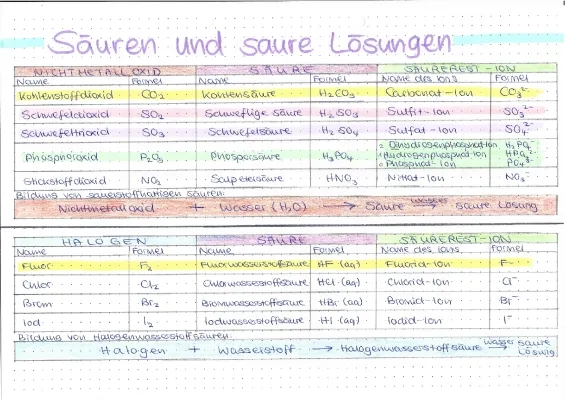 Säuren und saure Lösungen
NICHTMETALLOXID SÄURE SÄUREREST-ION
Name Formel Name Formel Name des Ions Formel
Kohlenstoffdioxid CO₂ Kohlensäure H₂CO₃ Carbonat-Ion CO₃²⁻
Schwefeldioxid SO₂ Schweflige Säure H₂SO₃ Sulfit-Ion SO₃²⁻
Schwefeltrioxid SO₃ Schwefelsäure H₂SO₄ Sulfat-Ion SO₄²⁻
Phosphoroxid P₂O₅ Phosporsäure H₃PO₄ Dihydrogenphosphation H₂PO₄⁻
Hydrogenphosphation HPO₄²⁻
Phosphat-Ion PO₄³⁻
Stickstoffdioxid NO₂ Salpetersäure HNO₃ Nitrat-Ion NO₃⁻
Bildung von sauerstoffhaltigen Säuren:
Nichtmetalloxid + Wasser (H₂O) → Säure wasser → saure Lösung
HALOGEN SÄURE SÄUREREST-ION
Name Formel Name Formel Name des Ions Formel
Fluor F₂ Fluorwasserstoffsäure HF (aq) Fluorid-Ion F⁻
Chlor Cl₂ Chlorwasserstoffsäure HCl (aq) Chlorid-Ion Cl⁻
Brom Br₂ Bromwasserstoffsäure HBr (aq) Bromid-Ion Br⁻
Iod I₂ Iodwasserstoffsäure HI (aq) Iodid-Ion I⁻
Bildung von Halogenwasserstoffsäuren:
Halogen + Wasserstoff → Halogenwasserstoffsäure wasser → saure Lösung